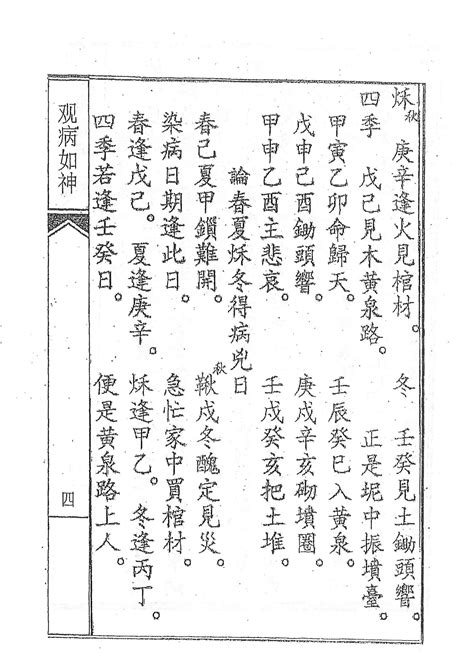 秌秋　庚辛逢火見棺材。　冬　壬癸見土鋤頭響。
四季　戊己見木黄泉路。　正是坭中振墳臺。
甲寅乙卯命歸天。　壬辰癸巳入黄泉。
戊申己酉鋤頭響。　庚戌辛亥砌墳圈。
甲申乙酉主悲哀。　壬戌癸亥把土堆。
論春夏秌冬得病兇日
春己夏甲鎖難開。　鞦秋戍冬醜定見災。
染病日期逢此日。　急忙家中買棺材。
春逢戊己。　夏逢庚辛。　秌逢甲乙。　冬逢丙丁。
四季若逢壬癸日。　便是黄泉路上人。
观病如神
四